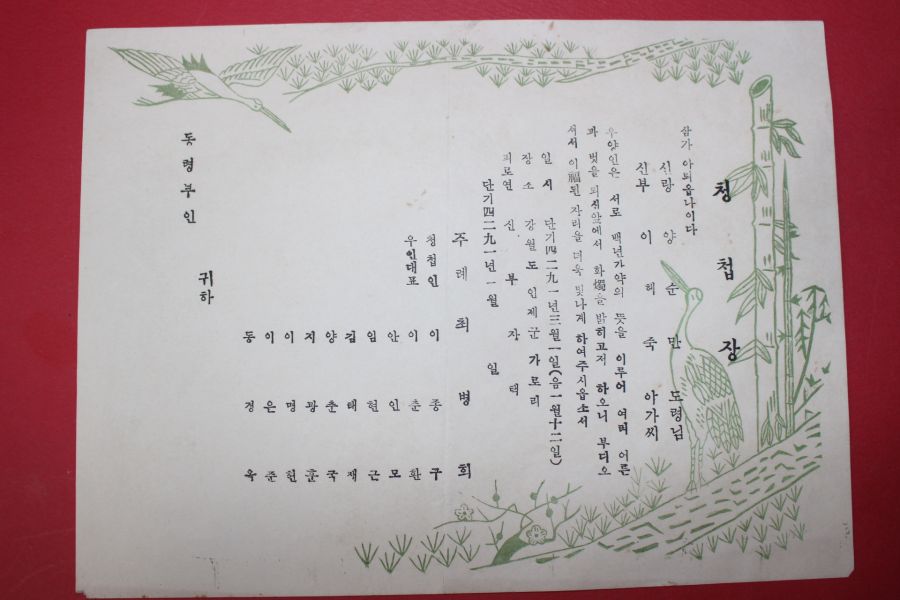 청첩장
삼가 아뢰옵나이다
신랑 양순만 도령님
신부 이해숙 아가씨
우 양인은 서로 백년가약의 뜻을 이루어 여러 어른
과 벗을 뫼신앞에서 화燭을 밝히고저 하오니 부디오
셔서 이福된 자리을 더욱 빛나게 하여주시옵소서
일시 단기四二九一년三월一일(음一월十二일)
장소 강원도 인제군 가로리
피로연 신부자일택
단기四二九一년 一월
주례 최병희
청첩인 이종구
우인대표 이춘환
안인모
임현근
김태재
양춘국
지광훈
이명헌
이은준
동경옥
귀하
동령부인